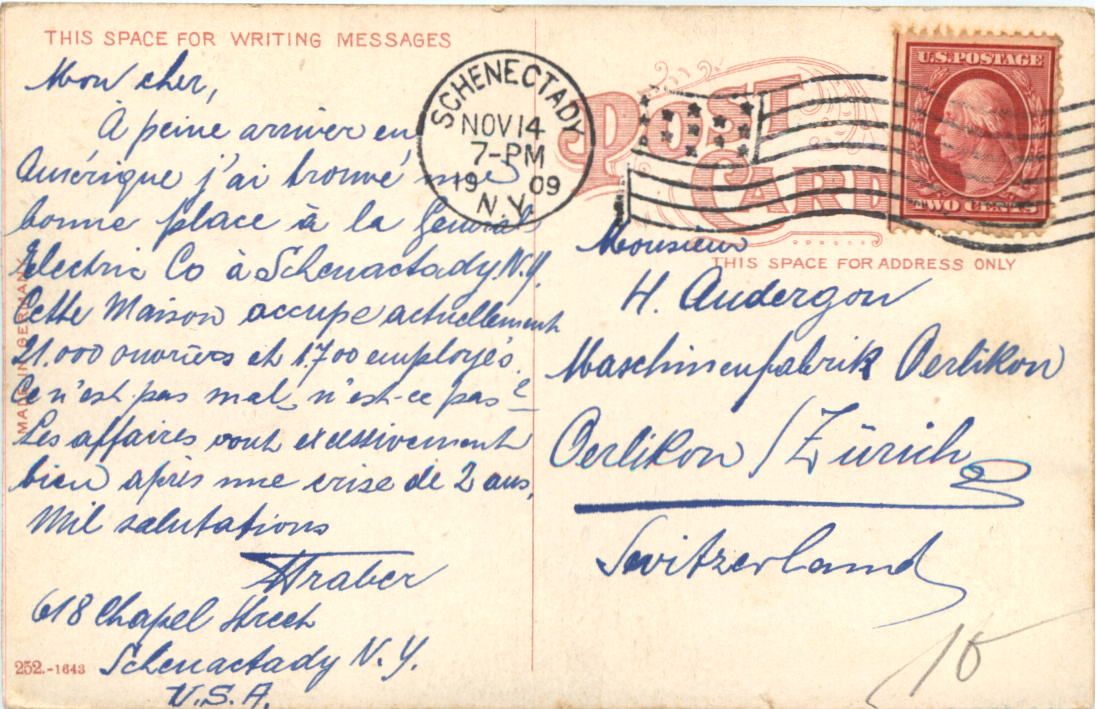 THIS SPACE FOR WRITING MESSAGES
Mon cher,
À peine arriver en
Amérique j'ai trouvé une
bonne place à la General
Electric Co à Schenactady N.Y.
Cette Maison accupe actuellement
21.000 ouvriers et 1.700 employés.
Ce n'est pas mal, n'est-ce pas?
Les affaires vont excessivement
bien après une crise de 2 ans.
Mil salutations
618 Chapel Street
Schenactady N.Y.
U.S.A.
MADE IN GERMANY
252.-1643
SCHENECTADY
NOV 14
7-PM
19 09
N.Y.
POST
CARD
U.S. POSTAGE
TWO CENTS
THIS SPACE FOR ADDRESS ONLY
Monsieur
H. Andergon
Maschinenfabrik Oerlikon
Oerlikon / Zürich
Switzerland